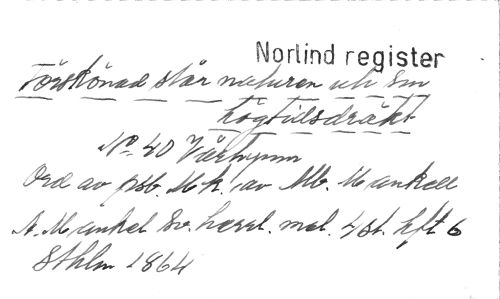 Norlind register
Förskönad står naturen uti sin
högtidsdräkt
No 40 Vårhymn
Ord av psb. Mk. av Ab. Mankell
A. Mankel Sv. harel. mel. 4 st. hft 6
Sthlm 1864